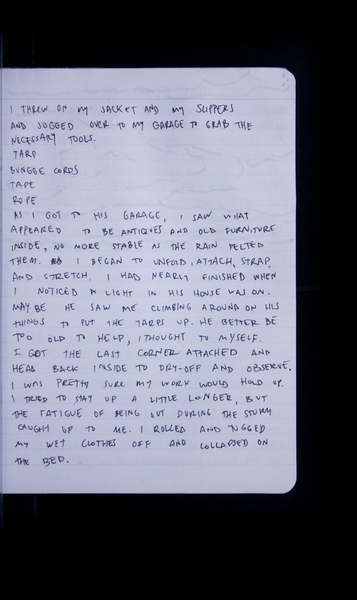 I THREW ON MY JACKET AND MY SLIPPERS
AND JOGGED OVER TO MY GARAGE TO GRAB THE
NECESSARY TOOLS.
TARP
BUNGEE CORDS
TAPE
ROPE
AS I GOT TO HIS GARAGE, I SAW WHAT
APPEARED TO BE ANTIQUES AND OLD FURNITURE
INSIDE, NO MORE STABLE AS THE RAIN PELTED
THEM. I BEGAN TO UNFOLD, ATTACH, STRAP,
AND STRETCH. I HAD NEARLY FINISHED WHEN
I NOTICED A LIGHT IN HIS HOUSE WAS ON.
MAYBE HE SAW ME CLIMBING AROUND ON HIS
THINGS TO PUT THE TARPS UP. HE BETTER BE
TOO OLD TO HELP, I THOUGHT TO MYSELF.
I GOT THE LAST CORNER ATTACHED AND
HEAD BACK INSIDE TO DRY-OFF AND OBSERVE.
I WAS PRETTY SURE MY WORK WOULD HOLD UP.
I TRIED TO STAY UP A LITTLE LONGER, BUT
THE FATIGUE OF BEING OUT DURING THE STORM
CAUGHT UP TO ME. I ROLLED AND TUGGED
MY WET CLOTHES OFF AND COLLAPSED ON
THE BED.